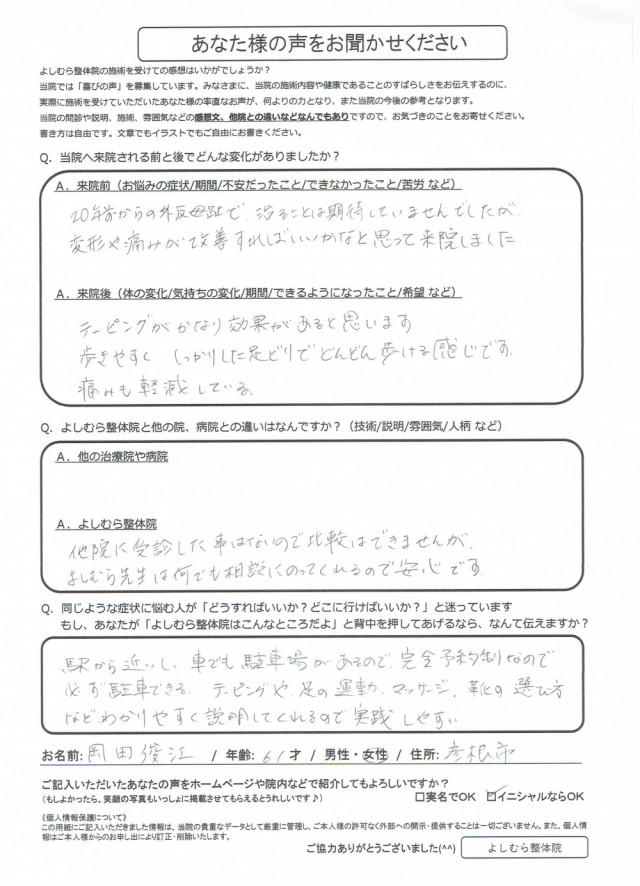 あなた様の声をお聞かせください
よしむら整体院の施術を受けての感想はいかがでしょうか？
当院では「喜びの声」を募集しています。みなさまに、当院の施術内容や健康であることのすばらしさをお伝えするのに、
実際に施術を受けていただいたあなた様の率直なお声が、何よりの力となり、また当院の今後の参考となります。
当院の問診や説明、施術、雰囲気などの感想文、他院との違いなどなんでもありですので、お気づきのことをお寄せください。
書き方は自由です。文章でもイラストでもご自由にお書きください。
Q．当院へ来院される前と後でどんな変化がありましたか？
A．来院前（お悩みの症状/期間/不安だったこと/できなかったこと/苦労 など）
20年前からの外反母趾で、治ることは期待していませんでしたが、
変形や痛みが改善すればいいかなと思って来院しました
A．来院後（体の変化/気持ちの変化/期間/できるようになったこと/希望 など）
テーピングがかなり効果があると思います
歩きやすく しっかりした足どりでどんどん歩ける感じです。
痛みも軽減している。
Q．よしむら整体院と他の院、病院との違いはなんですか？（技術/説明/雰囲気/人柄 など）
A．他の治療院や病院
A．よしむら整体院
他院に受診した事はないので比較はできませんが、
よしむら先生は何でも相談にのってくれるので安心です。
Q．同じような症状に悩む人が「どうすればいいか？どこに行けばいいか？」と迷っています
もし、あなたが「よしむら整体院はこんなところだよ」と背中を押してあげるなら、なんて伝えますか？
駅から近いし、車でも駐車場があるので、完全予約制なので
必ず駐車できる。テーピングや、足の運動、マッサージ、靴の選び方
など、わかりやすく説明してくれるので実践しやすい
お名前: 岡田俊江 / 年齢: 61才 / 男性・女性 / 住所: 彦根市
ご記入いただいたあなたの声をホームページや院内などで紹介してもよろしいですか？
（もしよかったら、笑顔の写真もいっしょに掲載させてもらえるとうれしいです♪）
□実名でOK ☑イニシャルならOK
《個人情報保護について》
この用紙にご記入いただきました情報は、当院の貴重なデータとして厳重に管理し、ご本人様の許可なく外部への開示・提供することは一切ございません。また、個人情
報はご本人様からのお申し出により訂正・削除いたします。
ご協力ありがとうございました(^^)
よしむら整体院